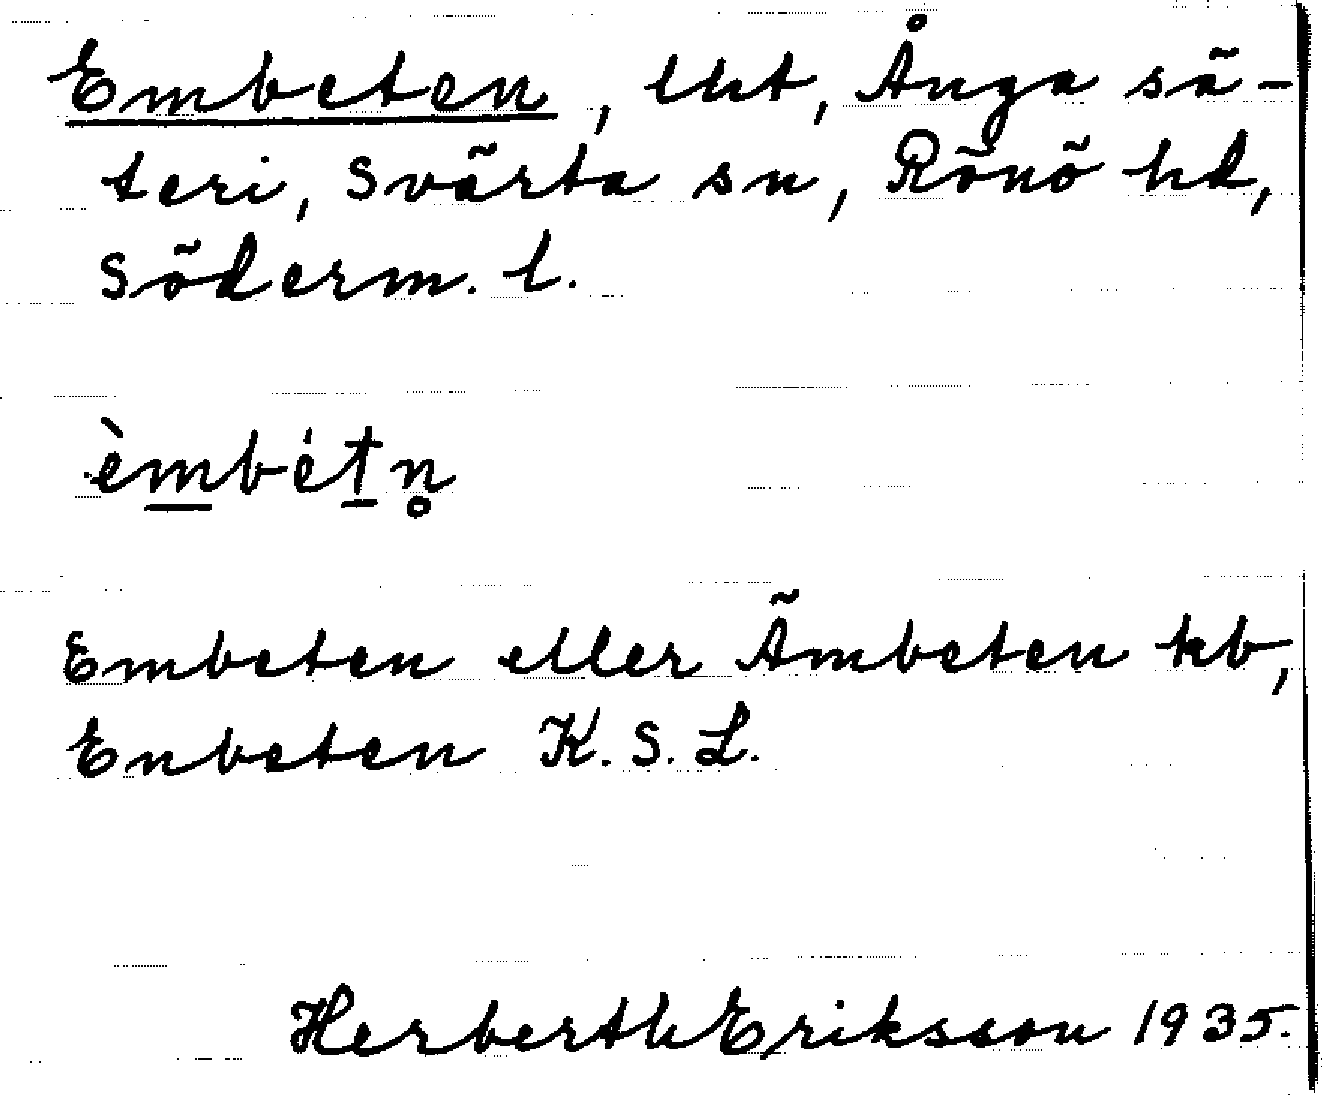 Embeten, lht, Ånga sä-
teri, Svärta sn, Rönö hd,
Söderm. l.
èmbét̠n̥
Embeten eller Ämbeten kb,
Enbeten K. S. L.
Herberth Eriksson 1935.